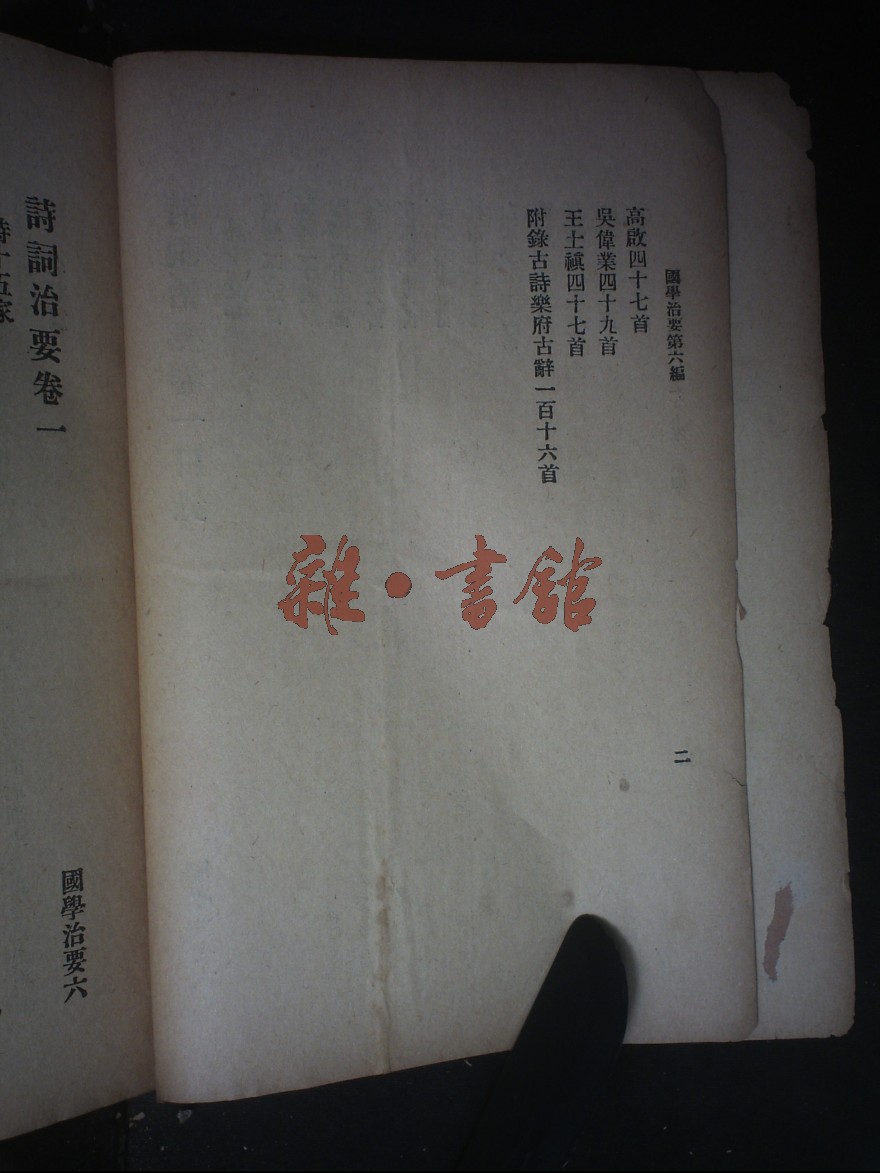 國學治要第六編
高啟四十七首
吳偉業四十九首
王士禛四十七首
附錄古詩樂府古辭一百十六首
二
雜·書館
國學治要六
詩詞治要卷一
詩十五家